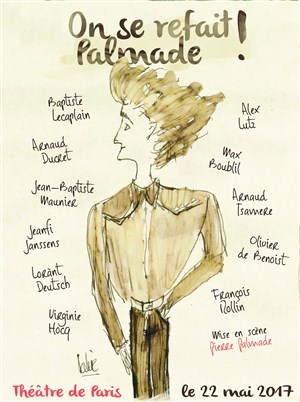 On se refait
Palmade !
Baptiste
Lecaplain
Arnaud
Ducret
Jean-Baptiste
Maunier
Jeanfi
Janssens
Lorànt
Deutsch
Virginie
Hocq
Alex
Lutz
Max
Boublil
Arnaud
Tsamere
Olivier
de Benoist
François
Rollin
Mise en scène
Pierre Palmade
Théâtre de Paris
le 22 mai 2017